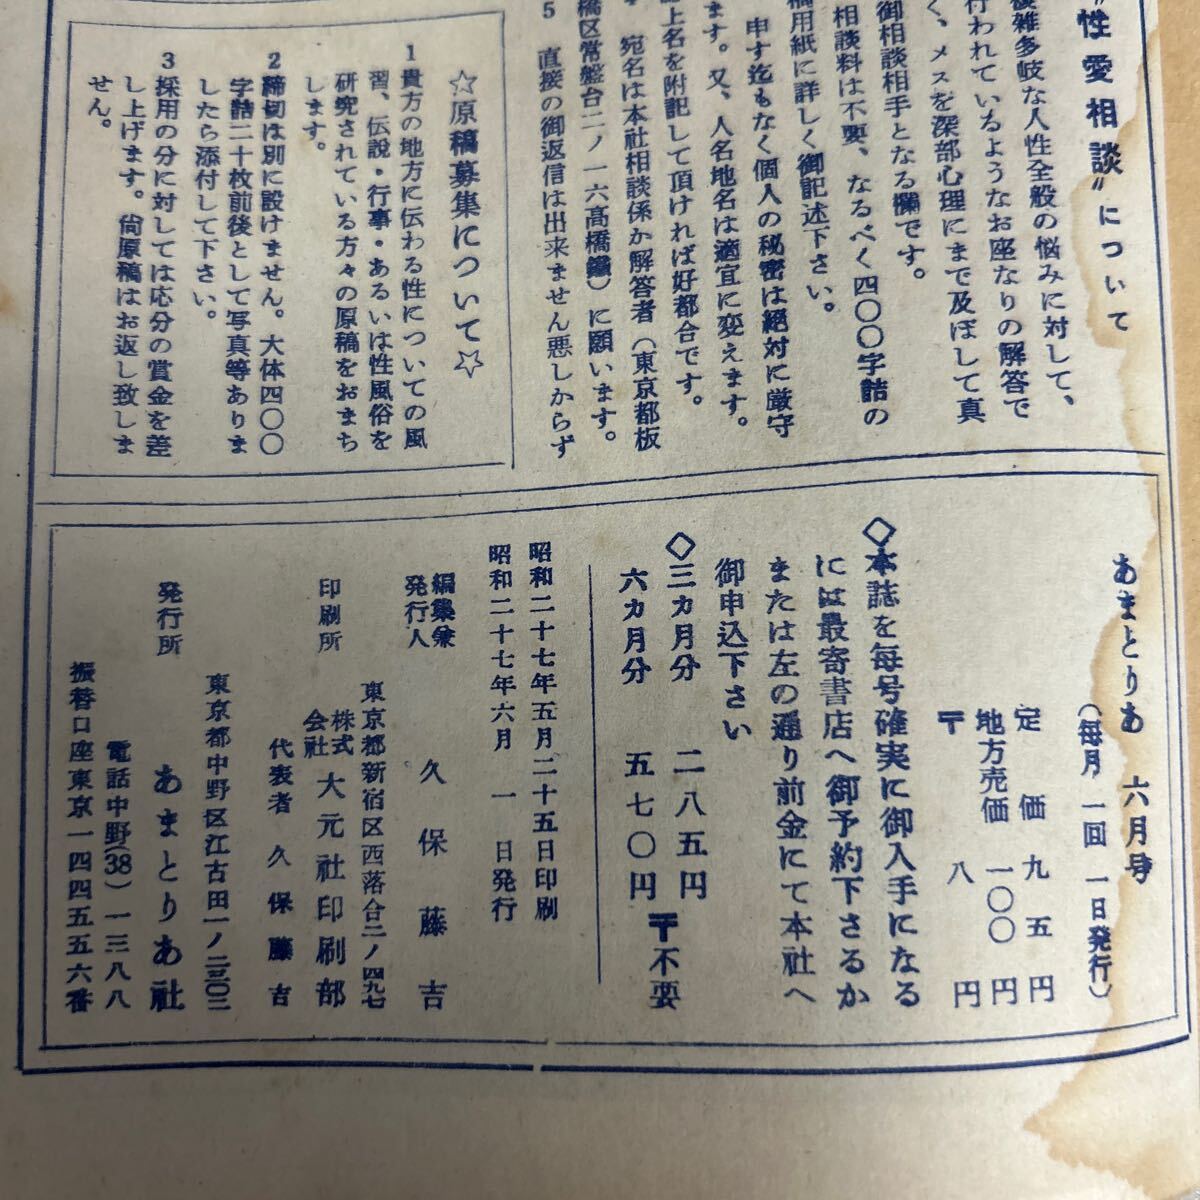 “性愛相談”について
複雑多岐な人性全般の悩みに対して、
行われているようなお座なりの解答で
く、メスを深部心理にまで及ぼして真
御相談相手となる欄です。
相談料は不要、なるべく四〇〇字詰の
稿用紙に詳しく御記述下さい。
申す迄もなく個人の秘密は絶対に厳守
ます。又、人名地名は適宜に変えます。
上名を附記して頂ければ好都合です。
4 宛名は本社相談係か解答者(東京都板
橋区常盤台二ノ一六高橋鐵)に願います。
5 直接の御返信は出来ません悪しからず
☆原稿募集について☆
1 貴方の地方に伝わる性についての風
習、伝説・行事・あるいは性風俗を
研究されている方々の原稿をおまち
します。
2 締切は別に設けません。大体四〇〇
字詰二十枚前後として写真等ありま
したら添付して下さい。
3 採用の分に対しては応分の賞金を差
し上げます。尚原稿はお返し致しま
せん。
あまとりあ 六月号
(毎月一回一日発行)
定価 九五円
地方売価 一〇〇円
〒 八円
◇本誌を毎号確実に御入手になる
には最寄書店へ御予約下さるか
または左の通り前金にて本社へ
御申込下さい
◇三カ月分 二八五円
六カ月分 五七〇円
〒不要
昭和二十七年五月二十五日印刷
昭和二十七年六月 一 日発行
編集兼
発行人 久保藤吉
東京都新宿区西落合二ノ四九七
印刷所 株式会社 大元社印刷部
代表者 久保藤吉
東京都中野区江古田一ノ二三〇三
発行所 あまとりあ社
電話中野(38)一三八八
振替口座東京一四四五五六番